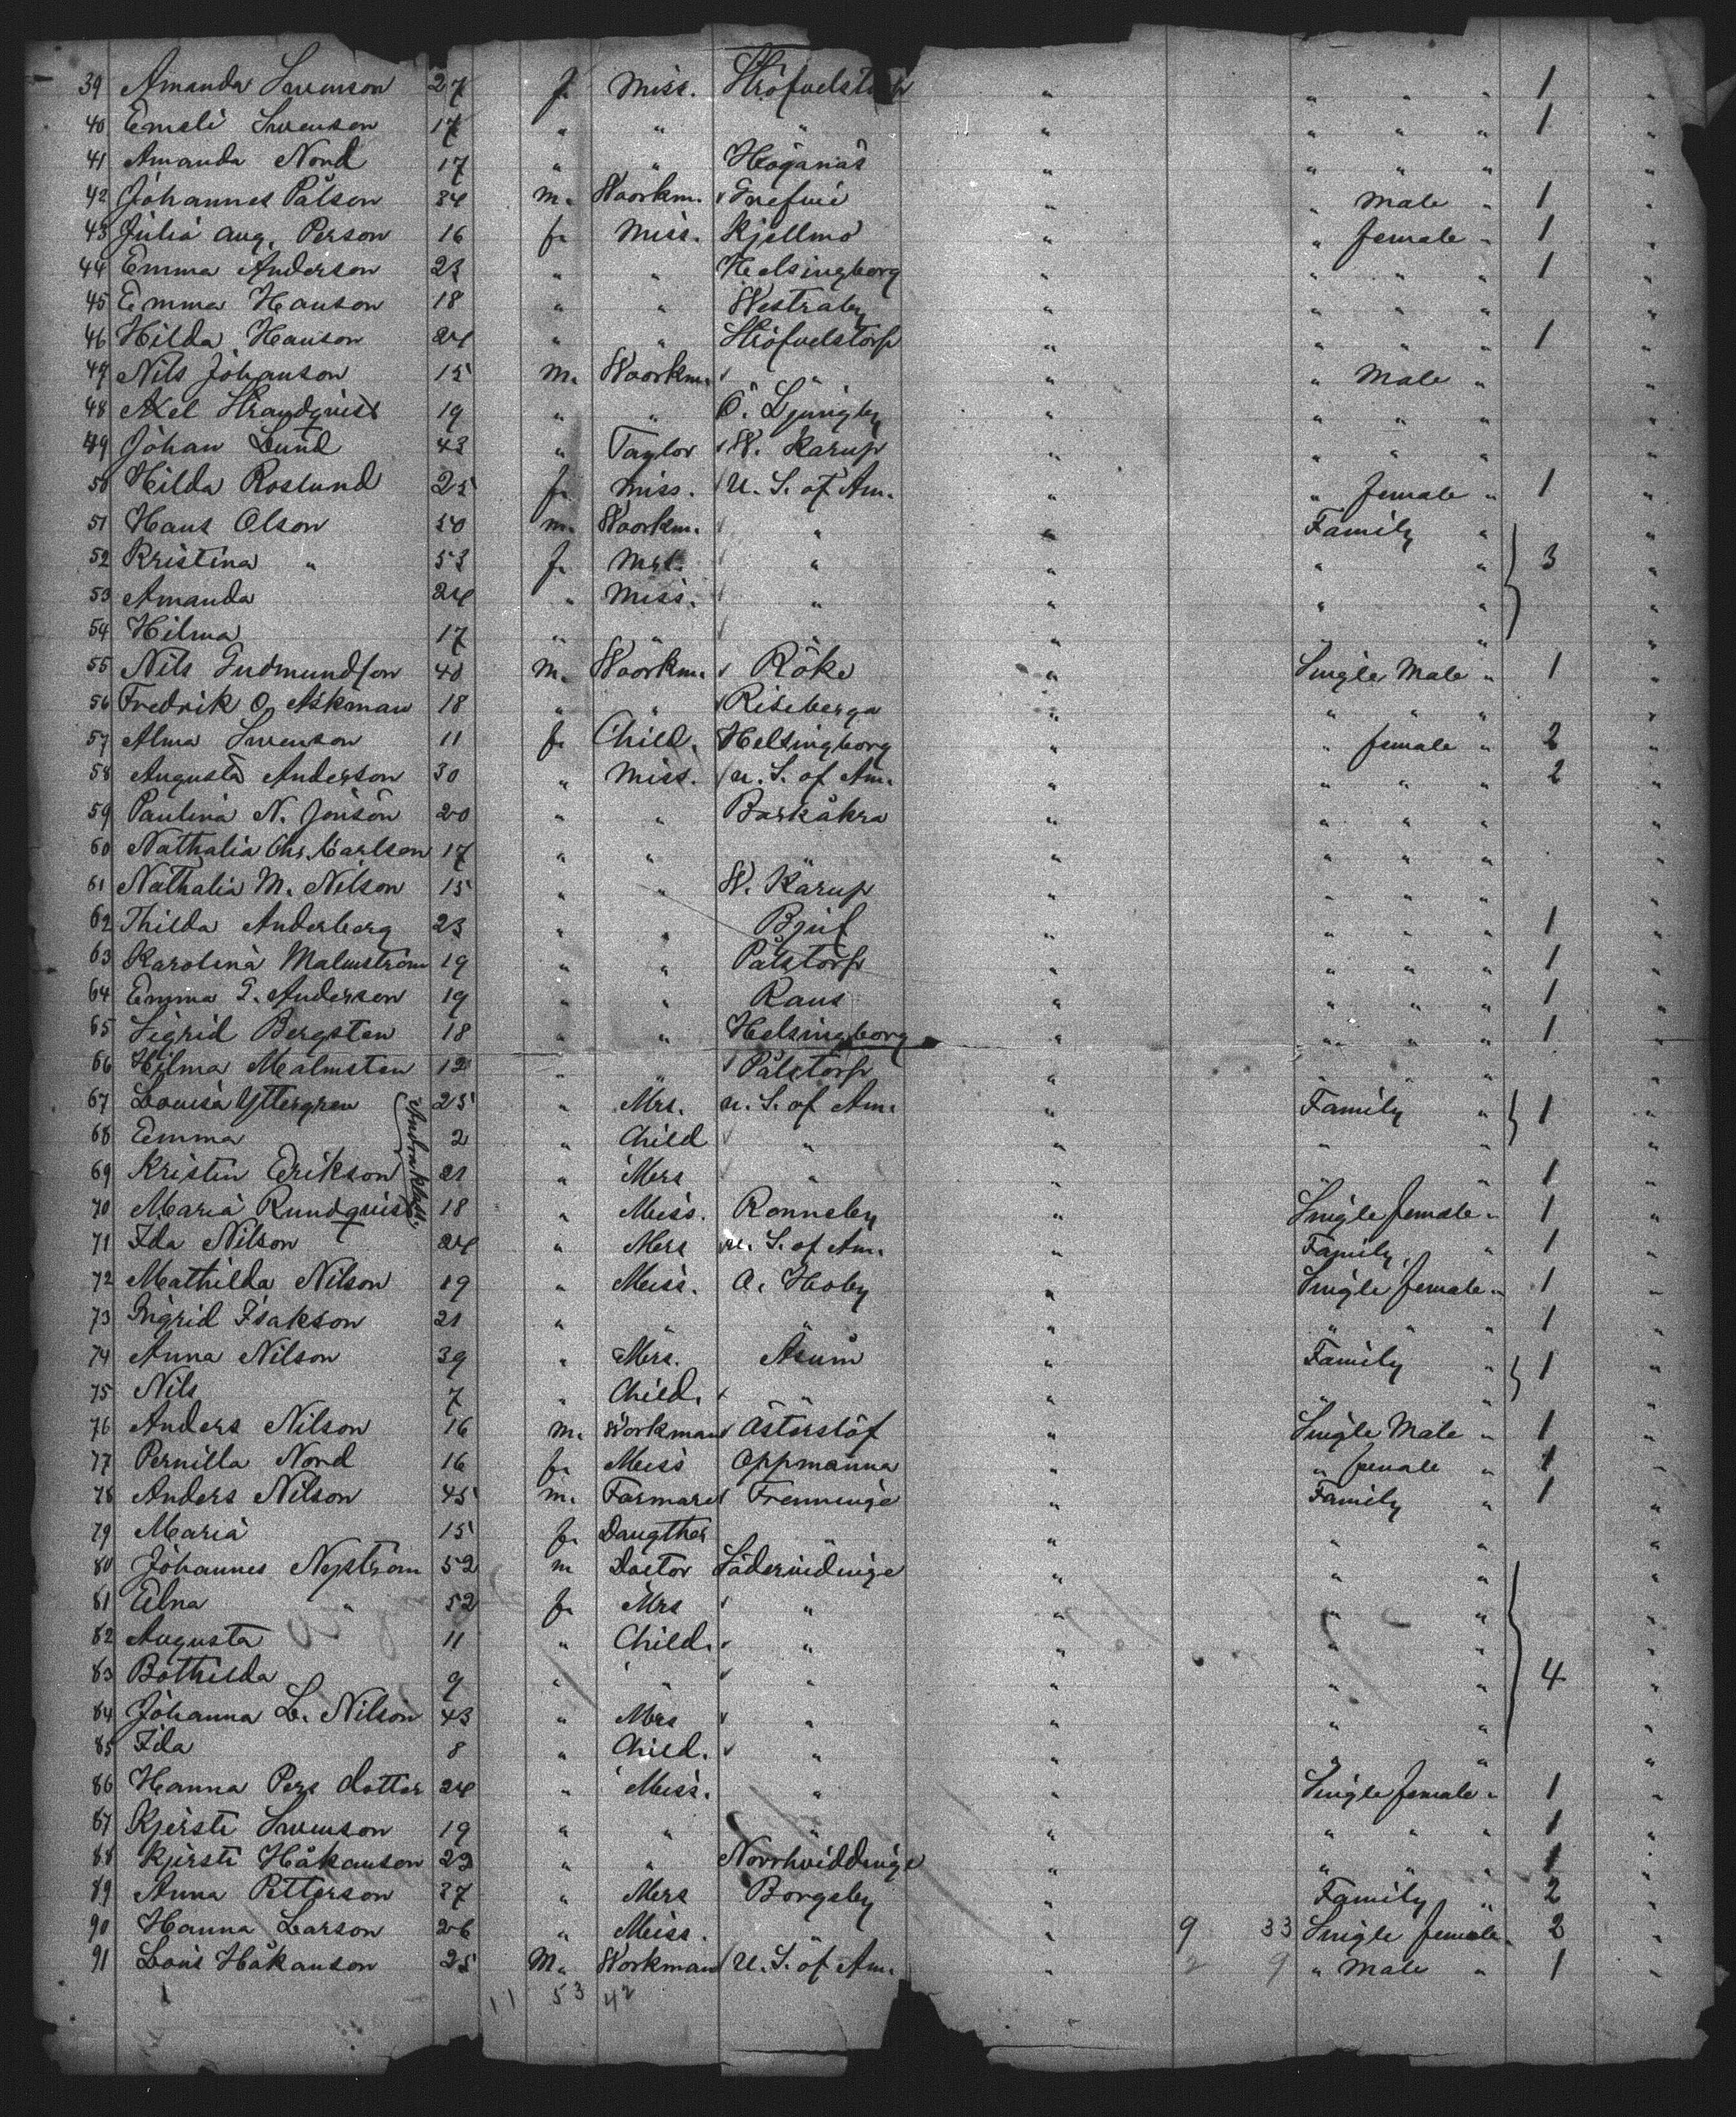 39 Amanda Swenson 27 f. Miss. Ströfvelstorp " " " " 1 "
40 Emeli Swenson 17 " " " " " " " 1 "
41 Amanda Nord 17 " " Höganäs " " " " "
42 Johannes Pålson 34 m. Woorkm. Grefvie " " Male " 1 "
43 Julia Aug. Person 16 f. Miss. Kjellmo " " female " 1 "
44 Emma Anderson 23 " " Helsingborg " " " " 1 "
45 Emma Hanson 18 " " Westraby " " " " "
46 Hilda Hanson 24 " " Ströfvelstorp " " " " 1 "
47 Nils Johanson 15 m. Woorkm. " " " Male " "
48 Axel Strandqvist 19 " " Ö. Ljungby " " " " "
49 Johan Lund 43 " Taylor W. Karup " " " " "
50 Hilda Roslund 25 f. Miss. U. S. of Am. " " female " 1 "
51 Hans Olson 50 m. Woorkm. " " Family " "
52 Kristina " 53 f. Mrs. " " " " 3 "
53 Amanda 24 " Miss. " " " " "
54 Hilma 17 " " " " " " "
55 Nils Gudmundson 40 m. Woorkm. Röke " Single Male " 1 "
56 Fredrik O. Askman 18 " " Riseberga " " " " "
57 Alma Swenson 11 f. Child. Helsingborg " " female " 2 "
58 Augusta Anderson 30 " Miss. U. S. of Am. " " " " 2 "
59 Paulina N. Jönson 20 " " Barkåkra " " " " "
60 Nathalia Chr. Carlson 17 " " " " " " "
61 Nathalia M. Nilson 15 " " W. Karup " " " "
62 Thilda Anderberg 23 " " Bjuf " " " " 1 "
63 Karolina Malmström 19 " " Pålstorp " " " " 1 "
64 Emma G. Anderson 19 " " Raus " " " " 1 "
65 Sigrid Bergsten 18 " " Helsingborg " " " " 1 "
66 Hilma Malmsten 12 " " Pålstorp " " " " "
67 Lovisa Yttergren 25 " Mrs. U. S. of Am. " Family " 1 "
68 Emma 2 " Child " " " " "
Andra klass.
69 Kristin Erikson 21 " Mrs " " " " 1 "
70 Maria Rundqvist 18 " Miss. Ronneby " Single female " 1 "
71 Ida Nilson 24 " Mrs U. S. of Am. " Family " 1 "
72 Mathilda Nilson 19 " Miss. Ö. Hoby " Single female " 1 "
73 Ingrid Isakson 21 " " " " " " " 1 "
74 Anna Nilson 39 " Mrs. Åsum " Family " 1 "
75 Nils 7 " Child. " " " " "
76 Anders Nilson 16 m. Workman Österslöf " Single Male " 1 "
77 Pernilla Nord 16 f. Miss Oppmanna " " female " 1 "
78 Anders Nilson 45 m. Farmare Frenninge " Family " 1 "
79 Maria 15 f. Daugther " " " " "
80 Johannes Nyström 52 m Doctor Södervidinge " " " "
81 Elna " 52 f. Mrs " " " " "
82 Augusta 11 " Child. " " " " "
83 Bothilda 9 " " " " " " 4 "
84 Johanna L. Nilson 43 " Mrs " " " " "
85 Ida 8 " Child. " " " " "
86 Hanna Pers dotter 24 " Miss. " " Single female " 1 "
87 Kjersti Swenson 19 " " " " " " " 1 "
88 Kjersti Håkanson 23 " " Norrhviddinge " " " " 1 "
89 Anna Petterson 37 " Mrs Borgeby " Family " 2 "
90 Hanna Larson 26 " Miss. " " 9 33 Single female " 2 "
91 Louis Håkanson 25 M. Workman U. S. of Am. " 2 9 " Male " 1 "
11 53 42